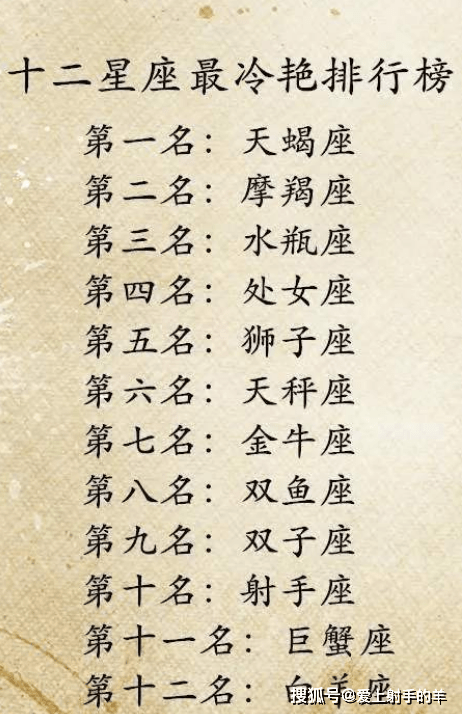 十二星座最冷艳排行榜
第一名：天蝎座
第二名：摩羯座
第三名：水瓶座
第四名：处女座
第五名：狮子座
第六名：天秤座
第七名：金牛座
第八名：双鱼座
第九名：双子座
第十名：射手座
第十一名：巨蟹座
第十二名：白羊座
搜狐号@爱上射手的羊